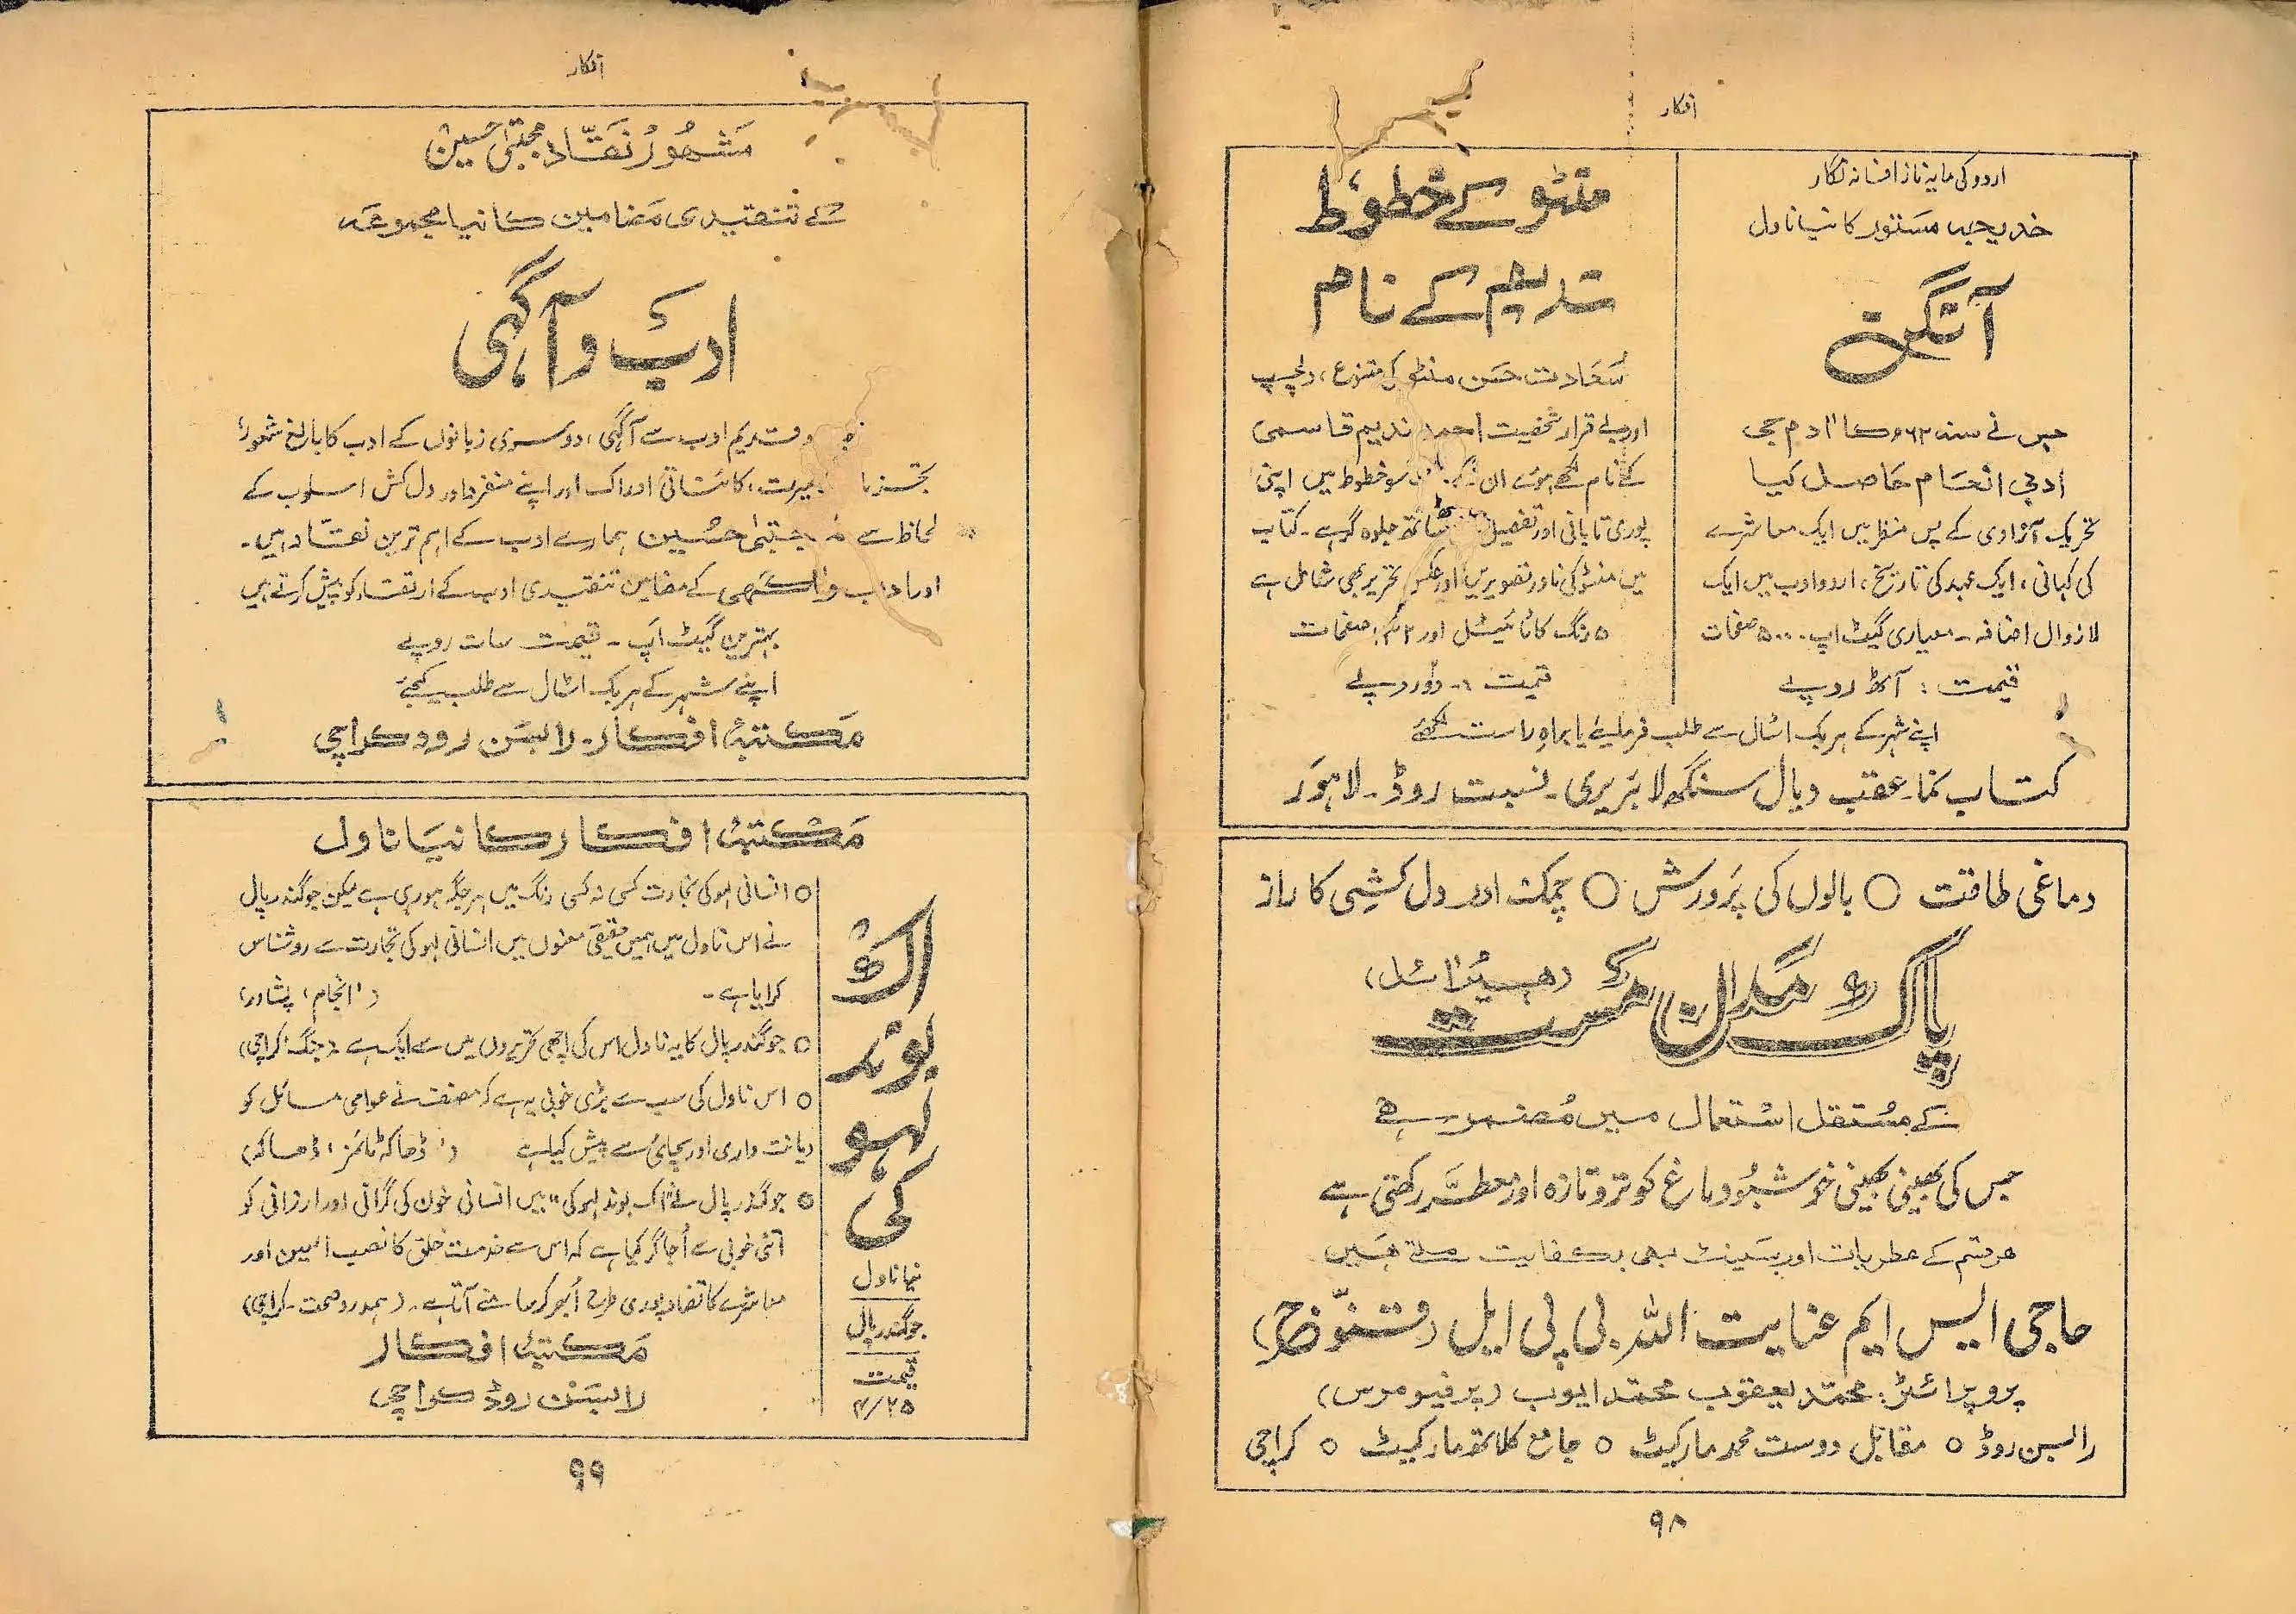 افکار
اردو کی مایہ ناز افسانہ نگار
خدیجہ مستور کا نیا ناول
آنگن
جس نے سنہ ۶۲ء کا آدم جی
ادبی انعام حاصل کیا
تحریک آزادی کے پس منظر میں ایک معاشرے
کی کہانی، ایک عہد کی تاریخ، اردو ادب میں ایک
لازوال اضافہ۔ معیاری گیٹ اپ ۵۰۰۰ صفحات
قیمت : آٹھ روپے
منٹو کے خطوط
ندیم کے نام
سعادت حسن منٹو کی متنوع، دلچسپ
اور بے قرار شخصیت احمد ندیم قاسمی
کے نام لکھے ہوئے ان سو خطوط میں اپنی
پوری تابانی اور تفصیل ساتھ جلوہ گر ہے۔ کتاب
میں منٹو کی نادر تصویریں اور عکس تحریر بھی شامل ہے
۵ رنگ کا ٹائیٹل اور صفحات
قیمت :۔ دو روپے
اپنے شہر کے ہر بک اسٹال سے طلب فرمایئے یا براہِ راست لکھئے
کتاب نما۔ عقب دیال سنگھ لائبریری۔ نسبت روڈ۔ لاہور
دماغی طاقت ○ بالوں کی پرورش ○ چمک اور دل کشی کا راز
پاک مگدل مست (ہیئر آئل)
کے مستقل استعمال میں مضمر ہے
جس کی بھینی بھینی خوشبو دماغ کو تروتازہ اور معطر رکھتی ہے
ہر قسم کے عطریات اور سینٹ بھی بکفایت ملتے ہیں
حاجی ایس ایم عنایت اللہ بی پی ایل (قنوج)
پروپرائٹر: محمد یعقوب محمد ایوب (پرفیومرس)
رابسن روڈ ○ مقابل دوست محمد مارکیٹ ○ جامع کلاتھ مارکیٹ ○ کراچی
۹۸
افکار
مشہور نقاد مجتبیٰ حسین
کے تنقیدی مضامین کا نیا مجموعہ
ادب و آگہی
و قدیم ادب سے آگہی، دوسری زبانوں کے ادب کا بالغ شعور
کائناتی ادراک اور اپنے منفرد اور دل کش اسلوب کے
لحاظ سے مجتبیٰ حسین ہمارے ادب کے اہم ترین نقاد ہیں۔
اور ادب و آگہی کے مضامین تنقیدی ادب کے ارتقاء کو پیش کرتے ہیں
بہترین گیٹ اپ ۔ قیمت سات روپے
اپنے شہر کے ہر بک اسٹال سے طلب کیجئے
مکتبۂ افکار۔ رابسن روڈ کراچی
مکتبۂ افکار کا نیا ناول
اک
بوند
لہو
کی
نیا ناول
جوگندر پال
قیمت
۴/۲۵
○ انسانی لہو کی تجارت کسی نہ کسی رنگ میں ہر جگہ ہو رہی ہے لیکن جوگندر پال
نے اس ناول میں ہمیں حقیقی معنوں میں انسانی لہو کی تجارت سے روشناس
کرایا ہے۔ ('انجام' پشاور)
○ جوگندر پال کا یہ ناول اس کی اچھی تحریروں میں سے ایک ہے (جنگ، کراچی)
○ اس ناول کی سب سے بڑی خوبی یہ ہے کہ مصنف نے عوامی مسائل کو
دیانت داری اور سچائی سے پیش کیا ہے ('ڈھاکہ ٹائمز' ڈھاکہ)
○ جوگندر پال نے "اک بوند لہو کی" میں انسانی خون کی گرانی اور ارزانی کو
اتنی خوبی سے اُجاگر کیا ہے کہ اس سے خدمت خلق کا نصب العین اور
معاشرے کا تضاد پوری طرح اُبھر کر سامنے آتا ہے۔ (ہمدرد صحت۔ کراچی)
مکتبۂ افکار
رابسن روڈ کراچی
۹۹